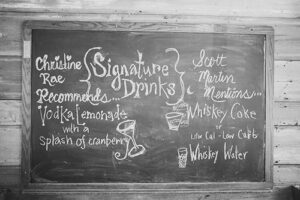 Christine
Rae
Recommends...
Vodka Lemonade
with a
splash of cranberry
{Signature
Drinks}
Scott
Martin
Mentions...
Whiskey Coke
or
Low Cal - Low Carb
Whiskey Water